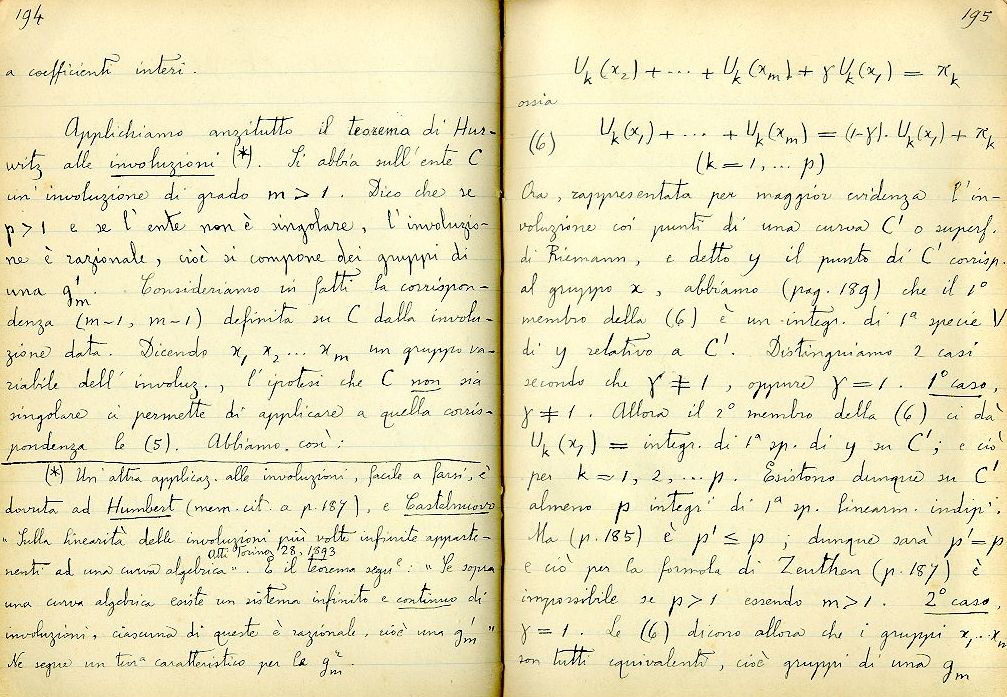 194
a coefficienti interi.
Applichiamo anzitutto il teorema di Hur-
witz alle involuzioni (*). Si abbia sull'ente C
un'involuzione di grado m > 1. Dico che se
p > 1 e se l'ente non è singolare, l'involuzio-
ne è razionale, cioè si compone dei gruppi di
una g¹ₘ. Consideriamo in fatti la corrispon-
denza (m-1, m-1) definita su C dalla involu-
zione data. Dicendo x₁ x₂ ... xₘ un gruppo va-
riabile dell'involuz., l'ipotesi che C non sia
singolare ci permette di applicare a quella corris-
pondenza le (5). Abbiamo così:
(*) Un'altra applicaz. alle involuzioni, facile a farsi, è
dovuta ad Humbert (mem. cit. a p. 187), e Castelnuovo
"Sulla linearità delle involuzioni più volte infinite apparte-
Atti Torino, 28, 1893
nenti ad una curva algebrica". È il teorema segu^e: "Se sopra
una curva algebrica esiste un sistema infinito e continuo di
involuzioni, ciascuna di queste è razionale, cioè una g¹ₘ"
Ne segue un teor^a caratteristico per le gʳₘ.
195
Uₖ(x₂) + ... + Uₖ(xₘ) + γUₖ(x₁) = πₖ
ossia
(6) Uₖ(x₁) + ... + Uₖ(xₘ) = (1-γ). Uₖ(x₁) + πₖ
(k = 1, ... p)
Ora, rappresentata per maggior evidenza l'in-
voluzione coi punti di una curva C' o superf.
di Riemann, e detto y il punto di C' corrisp.
al gruppo x, abbiamo (pag. 189) che il 1°
membro della (6) è un integr. di 1ª specie V
di y relativo a C'. Distinguiamo 2 casi
secondo che γ ≠ 1, oppure γ = 1. 1° caso,
γ ≠ 1. Allora il 2° membro della (6) ci dà
Uₖ(x₁) = integr. di 1ª sp. di y su C'; e ciò
per k = 1, 2, ... p. Esistono dunque su C'
almeno p integrⁱ di 1ª sp. linearm. indipⁱ.
Ma (p. 185) è p' ≤ p; dunque sarà p' = p
e ciò per la formola di Zeuthen (p. 187) è
impossibile se p > 1 essendo m > 1. 2° caso,
γ = 1. Le (6) dicono allora che i gruppi x₁...xₘ
son tutti equivalenti, cioè gruppi di una gₘ